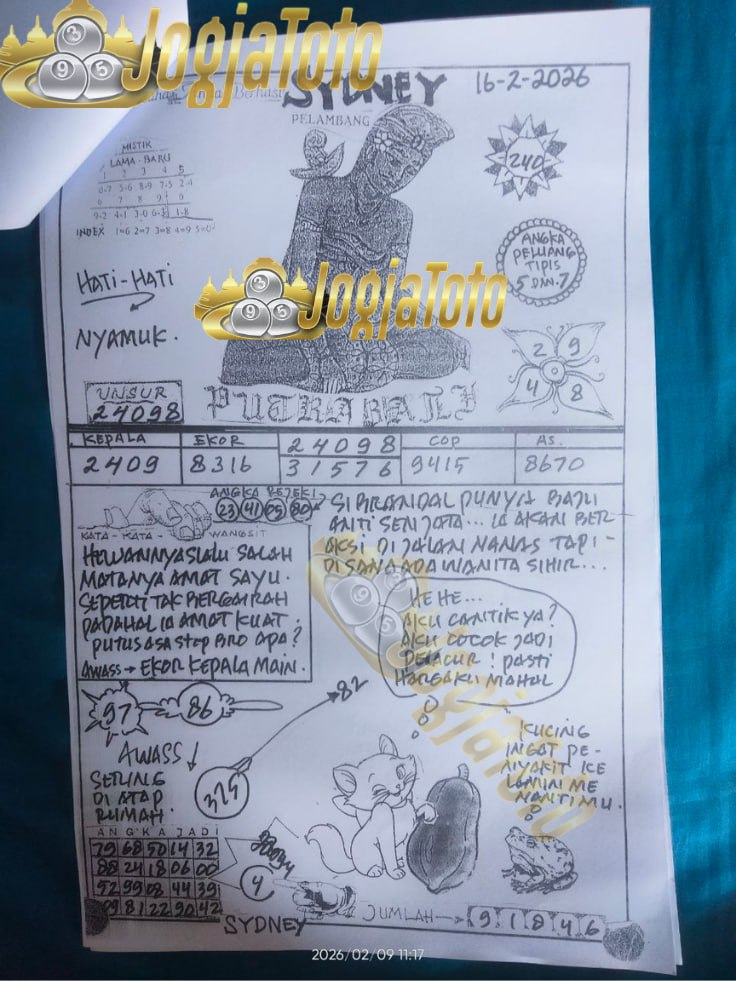 JogjaToto
3 9 5
SYDNEY
16-2-2026
PELAMBANG
MISTIK
LAMA - BARU
1 2 3 4 5
0-7 5-6 8-9 7-5 2-4
6 7 8 9 0
9-2 4-1 3-0 6-3 1-8
INDEX 1=6 2=7 3=8 4=9 5=0
240
ANGKA
PELUANG
TIPIS
5 DAN 7
HATI-HATI
NYAMUK.
JogjaToto
3 9 5
2 9
4 8
UNSUR
24098
PUTRA BALI
KEPALA EKOR 24098 COP AS.
2409 8316 31576 9415 8670
ANGKA REJEKI
23 41 05 80
KATA - KATA - WANGSIT
HEWANNYA SLALU SALAH
MATANYA AMAT SAYU.
SEPERTI TAK BERGAIRAH
PADAHAL IA AMAT KUAT.
PUTUS ASA STOP BRO APA?
AWASS → EKOR KEPALA MAIN.
SI BRANDAL PUNYA BAJU
ANTI SENJATA... IA AKAN BER-
AKSI DI JALAN NANAS TAPI -
DI SANA ADA WANITA SIHIR...
HE HE...
AKU CANTIK YA?
AKU COCOK JADI
PELACUR! PASTI
HARGAKU MAHAL
97
86
82
AWASS ↓
SERING
DI ATAP
RUMAH.
325
KUCING
INGAT PE-
NYAKIT KE
LAMIN ME
NANTIMU.
JogjaToto
3 9 5
ANGKA JADI
79 68 50 14 32
88 24 18 06 00
52 99 08 44 39
09 81 22 90 42
4
JUMLAH → 9 1 8 4 6
SYDNEY
2026/02/09 11:17